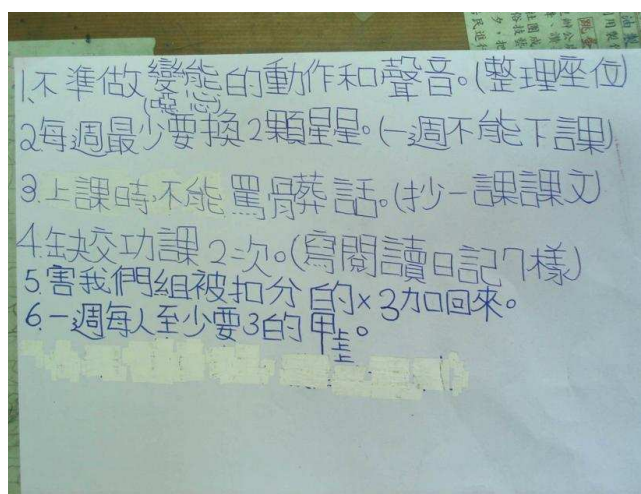 1.不準做變態的動作和聲音。(整理座位)
(噁心)
2每週最少要換2顆星星。(一週不能下課)
3.上課時,不能罵髒話。(抄一課課文)
4.缺交功課2=次。(寫閱讀日記7樣)
5.害我們組被扣分的×3加回來。
6.一週每人至少要3的甲